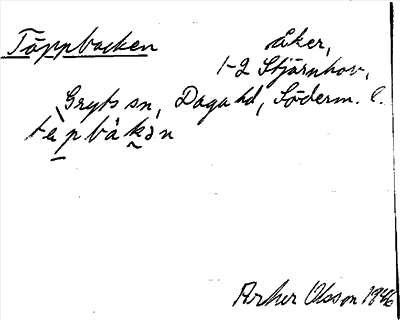 Täppbacken Åker,
1-2 Stjärnhov,
Gryts sn, Daga hd, Söderm. l.
Arthur Olsson 1946